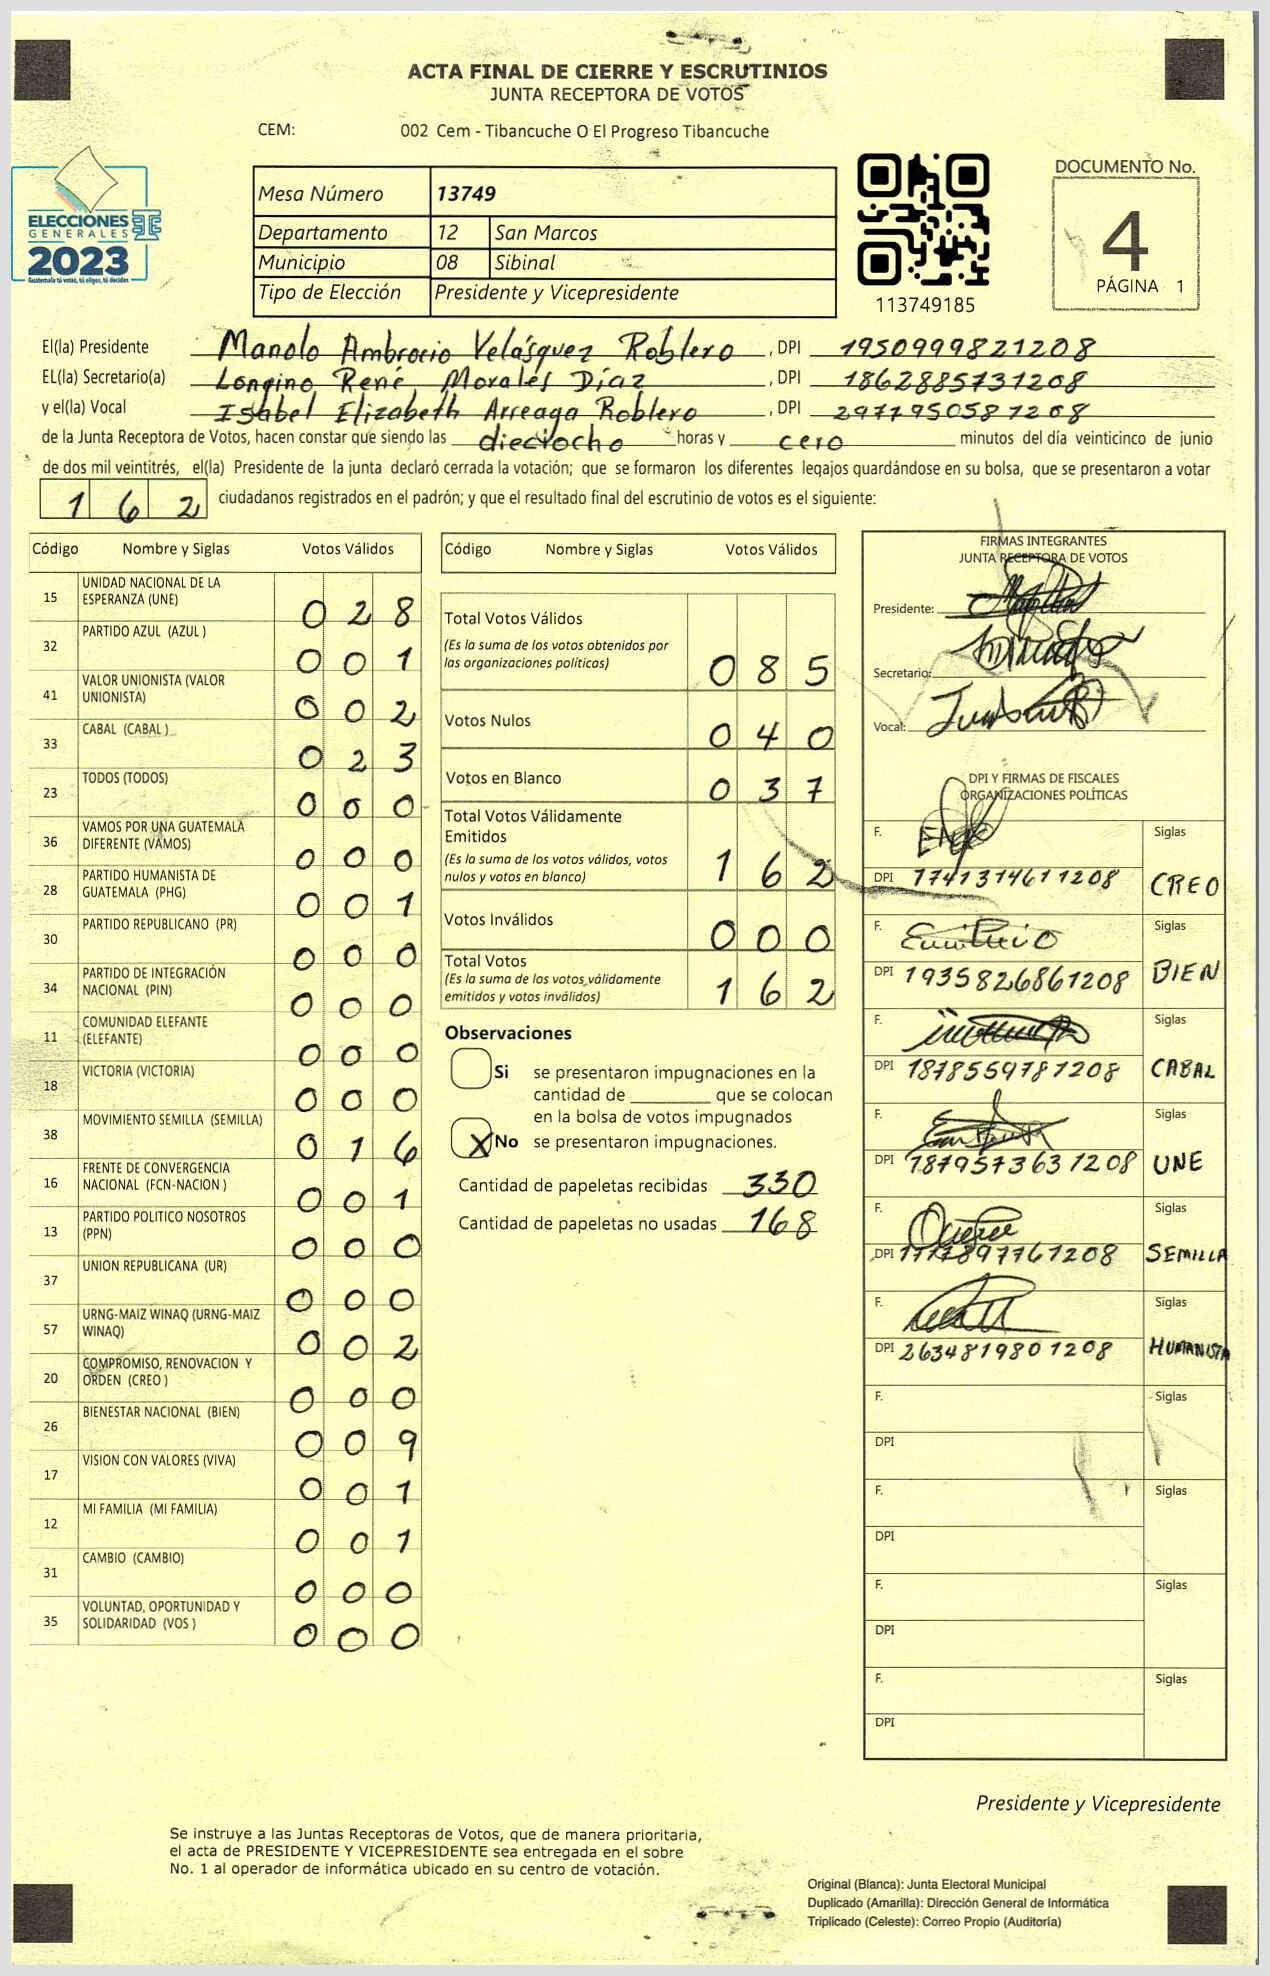 ACTA FINAL DE CIERRE Y ESCRUTINIOS
JUNTA RECEPTORA DE VOTOS
CEM: 002 Cem - Tibancuche O El Progreso Tibancuche
ELECCIONES
GENERALES
2023
Guatemala tú votas, tú eliges, tú decides
Mesa Número 13749
Departamento 12 San Marcos
Municipio 08 Sibinal
Tipo de Elección Presidente y Vicepresidente
113749185
DOCUMENTO No.
4
PÁGINA 1
El(la) Presidente Manolo Ambrocio Velásquez Roblero , DPI 1950999821208
EL(la) Secretario(a) Longino René Morales Díaz , DPI 1862885731208
y el(la) Vocal Isabel Elizabeth Arreaga Roblero , DPI 2977950581208
de la Junta Receptora de Votos, hacen constar que siendo las dieciocho horas y cero minutos del día veinticinco de junio
de dos mil veintitrés, el(la) Presidente de la junta declaró cerrada la votación; que se formaron los diferentes legajos guardándose en su bolsa, que se presentaron a votar
162 ciudadanos registrados en el padrón; y que el resultado final del escrutinio de votos es el siguiente:
Código Nombre y Siglas Votos Válidos
15 UNIDAD NACIONAL DE LA ESPERANZA (UNE) 028
32 PARTIDO AZUL (AZUL ) 001
41 VALOR UNIONISTA (VALOR UNIONISTA) 002
33 CABAL (CABAL ) 023
23 TODOS (TODOS) 000
36 VAMOS POR UNA GUATEMALA DIFERENTE (VAMOS) 000
28 PARTIDO HUMANISTA DE GUATEMALA (PHG) 001
30 PARTIDO REPUBLICANO (PR) 000
34 PARTIDO DE INTEGRACIÓN NACIONAL (PIN) 000
11 COMUNIDAD ELEFANTE (ELEFANTE) 000
18 VICTORIA (VICTORIA) 000
38 MOVIMIENTO SEMILLA (SEMILLA) 016
16 FRENTE DE CONVERGENCIA NACIONAL (FCN-NACION ) 001
13 PARTIDO POLITICO NOSOTROS (PPN) 000
37 UNION REPUBLICANA (UR) 000
57 URNG-MAIZ WINAQ (URNG-MAIZ WINAQ) 002
20 COMPROMISO, RENOVACION Y ORDEN (CREO ) 000
26 BIENESTAR NACIONAL (BIEN) 009
17 VISION CON VALORES (VIVA) 001
12 MI FAMILIA (MI FAMILIA) 001
31 CAMBIO (CAMBIO) 000
35 VOLUNTAD, OPORTUNIDAD Y SOLIDARIDAD (VOS ) 000
Código Nombre y Siglas Votos Válidos
Total Votos Válidos
(Es la suma de los votos obtenidos por
las organizaciones políticas) 085
Votos Nulos 040
Votos en Blanco 037
Total Votos Válidamente
Emitidos
(Es la suma de los votos válidos, votos
nulos y votos en blanco) 162
Votos Inválidos 000
Total Votos
(Es la suma de los votos válidamente
emitidos y votos inválidos) 162
Observaciones
Si se presentaron impugnaciones en la
cantidad de ________ que se colocan
en la bolsa de votos impugnados
X No se presentaron impugnaciones.
Cantidad de papeletas recibidas 330
Cantidad de papeletas no usadas 168
FIRMAS INTEGRANTES
JUNTA RECEPTORA DE VOTOS
Presidente:
Secretario:
Vocal:
DPI Y FIRMAS DE FISCALES
ORGANIZACIONES POLÍTICAS
F. Siglas
DPI 1741314611208 CREO
F. Siglas
DPI 1935826861208 BIEN
F. Siglas
DPI 1878559781208 CABAL
F. Siglas
DPI 1879573631208 UNE
F. Siglas
DPI 1777897761208 SEMILLA
F. Siglas
DPI 2634819801208 HUMANISTA
F. Siglas
DPI
F. Siglas
DPI
F. Siglas
DPI
F. Siglas
DPI
Presidente y Vicepresidente
Se instruye a las Juntas Receptoras de Votos, que de manera prioritaria,
el acta de PRESIDENTE Y VICEPRESIDENTE sea entregada en el sobre
No. 1 al operador de informática ubicado en su centro de votación.
Original (Blanca): Junta Electoral Municipal
Duplicado (Amarilla): Dirección General de Informática
Triplicado (Celeste): Correo Propio (Auditoría)